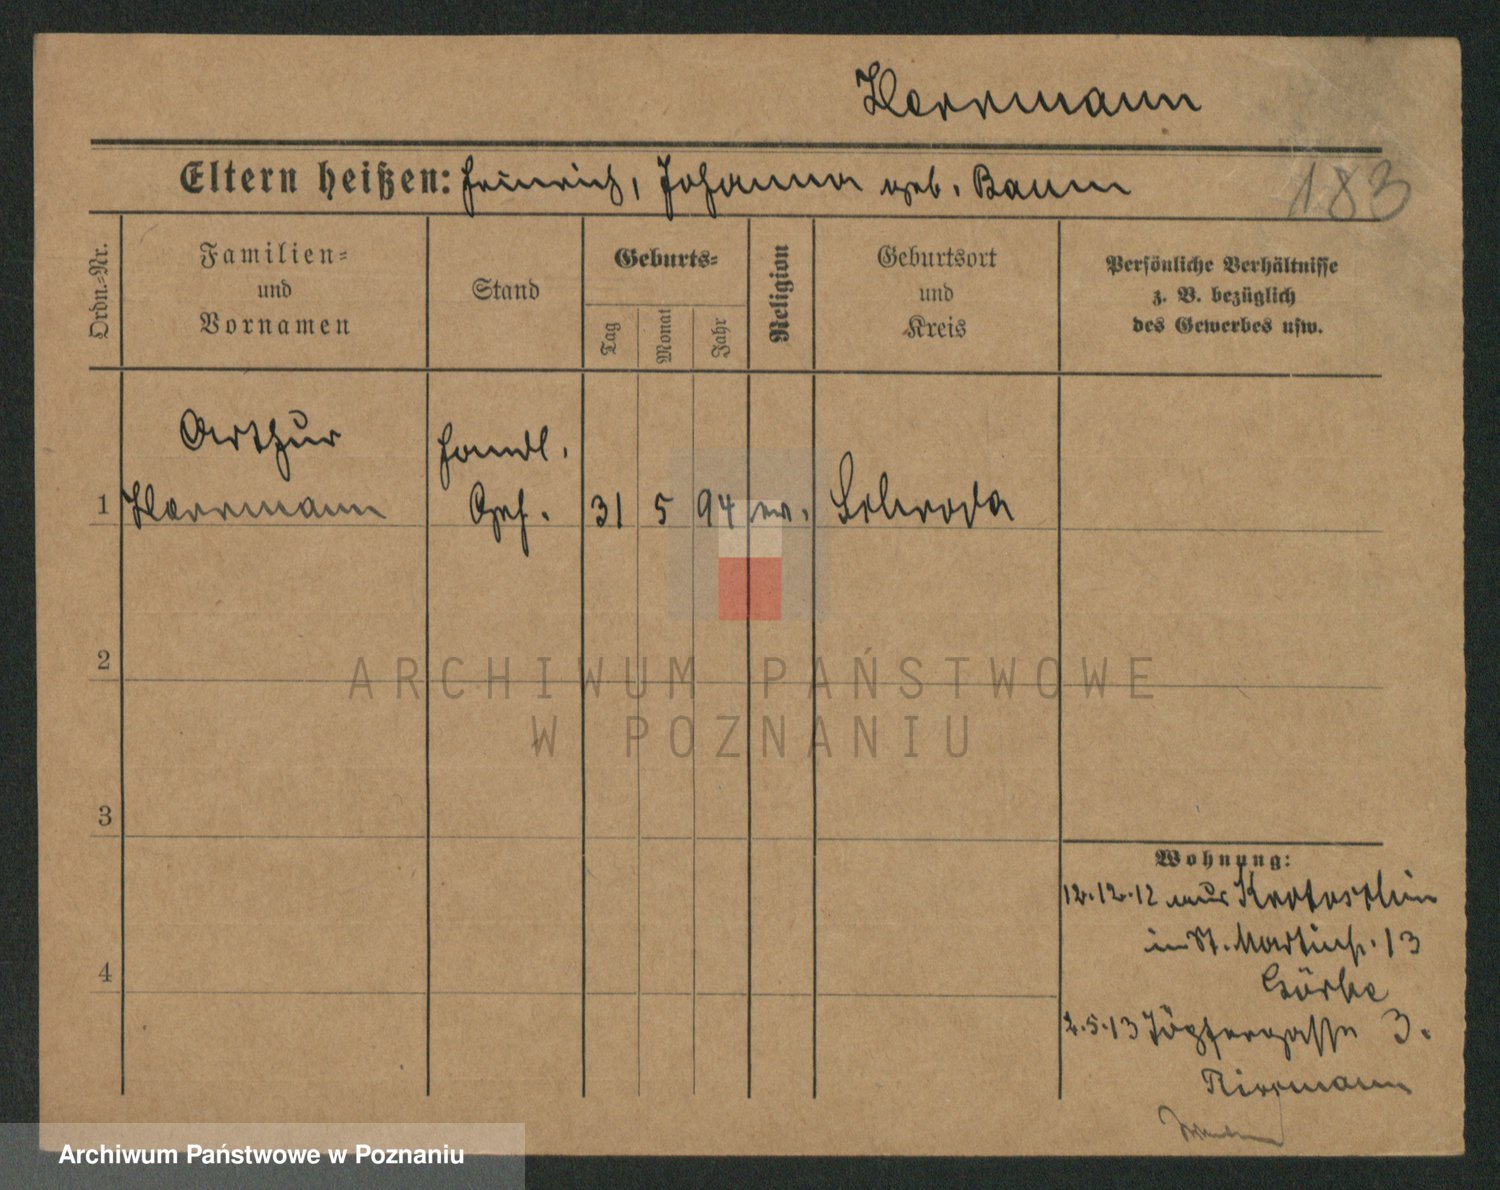 Herrmann
Eltern heißen: Heinrich, Johanna geb. Baum
183
Ordn.-Nr.
Familien-
und
Vornamen
Stand
Geburts-
Tag
Monat
Jahr
Religion
Geburtsort
und
Kreis
Persönliche Verhältnisse
z. B. bezüglich
des Gewerbes usw.
Arthur
Handl.
1 Herrmann Geh. 31 5 94 ev. Schroda
2
ARCHIWUM PAŃSTWOWE
W POZNANIU
3
Wohnung:
12.12.12 aus Krotoschin
in St. Martinstr. 13
4
2.5.13 Töpfergasse 3.
Archiwum Państwowe w Poznaniu